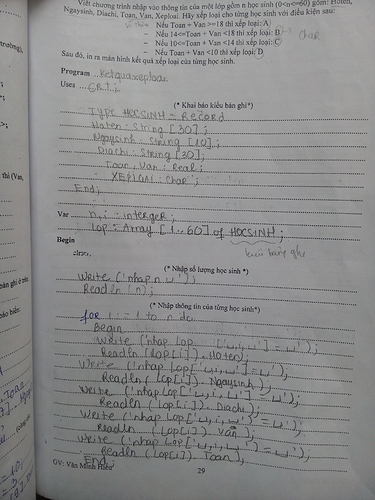 Viết chương trình nhập vào thông tin của một lớp gồm n học sinh (0<n<=60) gồm: Hoten,
Ngaysinh, Diachi, Toan, Van, Xeploai. Hãy xếp loại cho từng học sinh với điều kiện sau:
- Nếu Toan + Van >=18 thì xếp loại: A
- Nếu 14<=Toan + Van <18 thì xếp loại: B
- Nếu 10<=Toan + Van <14 thì xếp loại: C
char
- Nếu Toan + Van <10 thì xếp loại: D
Sau đó, in ra màn hình kết quả xếp loại của từng học sinh.
Program ketquaxeploai
Uses CRT;
(* Khai báo kiểu bản ghi*)
TYPE HOCSINH = Record
Hoten : String [30];
Ngaysinh : String [10];
Diachi : String [30];
Toan, Van : Real;
XEPLOAI : Char;
End;
Var n, i : interger;
Lop : Array [1..60] of HOCSINH;
Begin
kiểu bảng ghi
clrsc.
(* Nhập số lượng học sinh *)
Write ('nhap n u');
Readln (n);
(* Nhập thông tin của từng học sinh*)
for i := 1 to n do
Begin
Write ('nhap Lop ['u,i,u'] = u');
Readln (Lop[i]). Hoten);
Write ('nhap Lop['u,i,u'] = u');
Readln (Lop[i]). Ngaysinh);
Write ('nhap Lop['u,i,u'] = u');
Readln (Lop[i]). Diachi);
Write ('nhap Lop['u,i,u'] = u');
Readln (Lop[i]). Van);
Write ('nhap Lop['u,i,u'] = u');
Readln (Lop[i]). Toan);
End;
GV: Văn Minh Hiếu
29